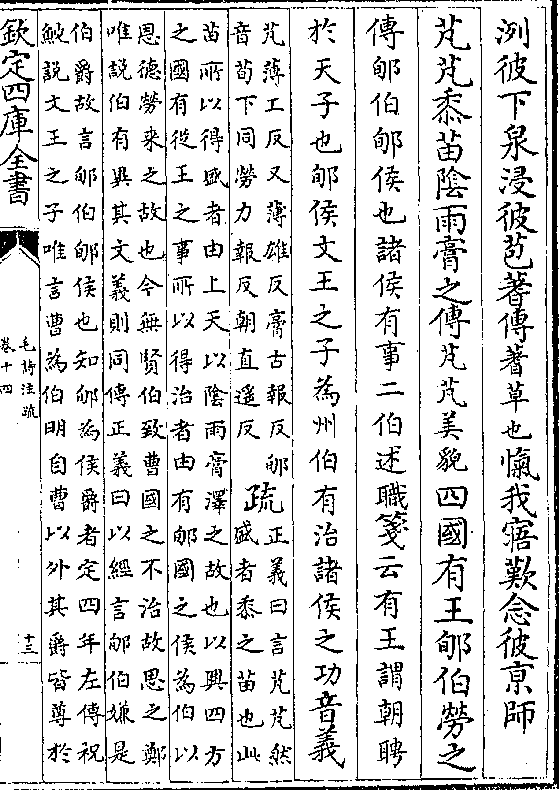 洌彼下泉浸彼苞蓍傳蓍草也愾我寤歎念彼京師
芃芃黍苗陰雨膏之傳芃芃美貌四國有王郇伯勞之
傳郇伯郇侯也諸侯有事二伯述職箋云有王謂朝聘
於天子也郇侯文王之子為州伯有治諸侯之功音義
芃薄工反又薄雄反膏古報反郇
音荀下同勞力報反朝直遥反
疏
正義曰言芃芃然
盛者黍之苗也此
苗所以得盛者由上天以陰雨膏澤之故也以興四方
之國有從王之事所以得治者由有郇國之侯為伯以
恩德勞來之故也今無賢伯致曹國之不治故思之鄭
唯説伯有異其文義則同傳正義曰以經言郇伯嫌是
伯爵故言郇伯郇侯也知郇為侯爵者定四年左傳祝
鮀説文王之子唯言曹為伯明自曹以外其爵皆尊於
欽定四庫全書
毛詩注疏
卷十四
十三